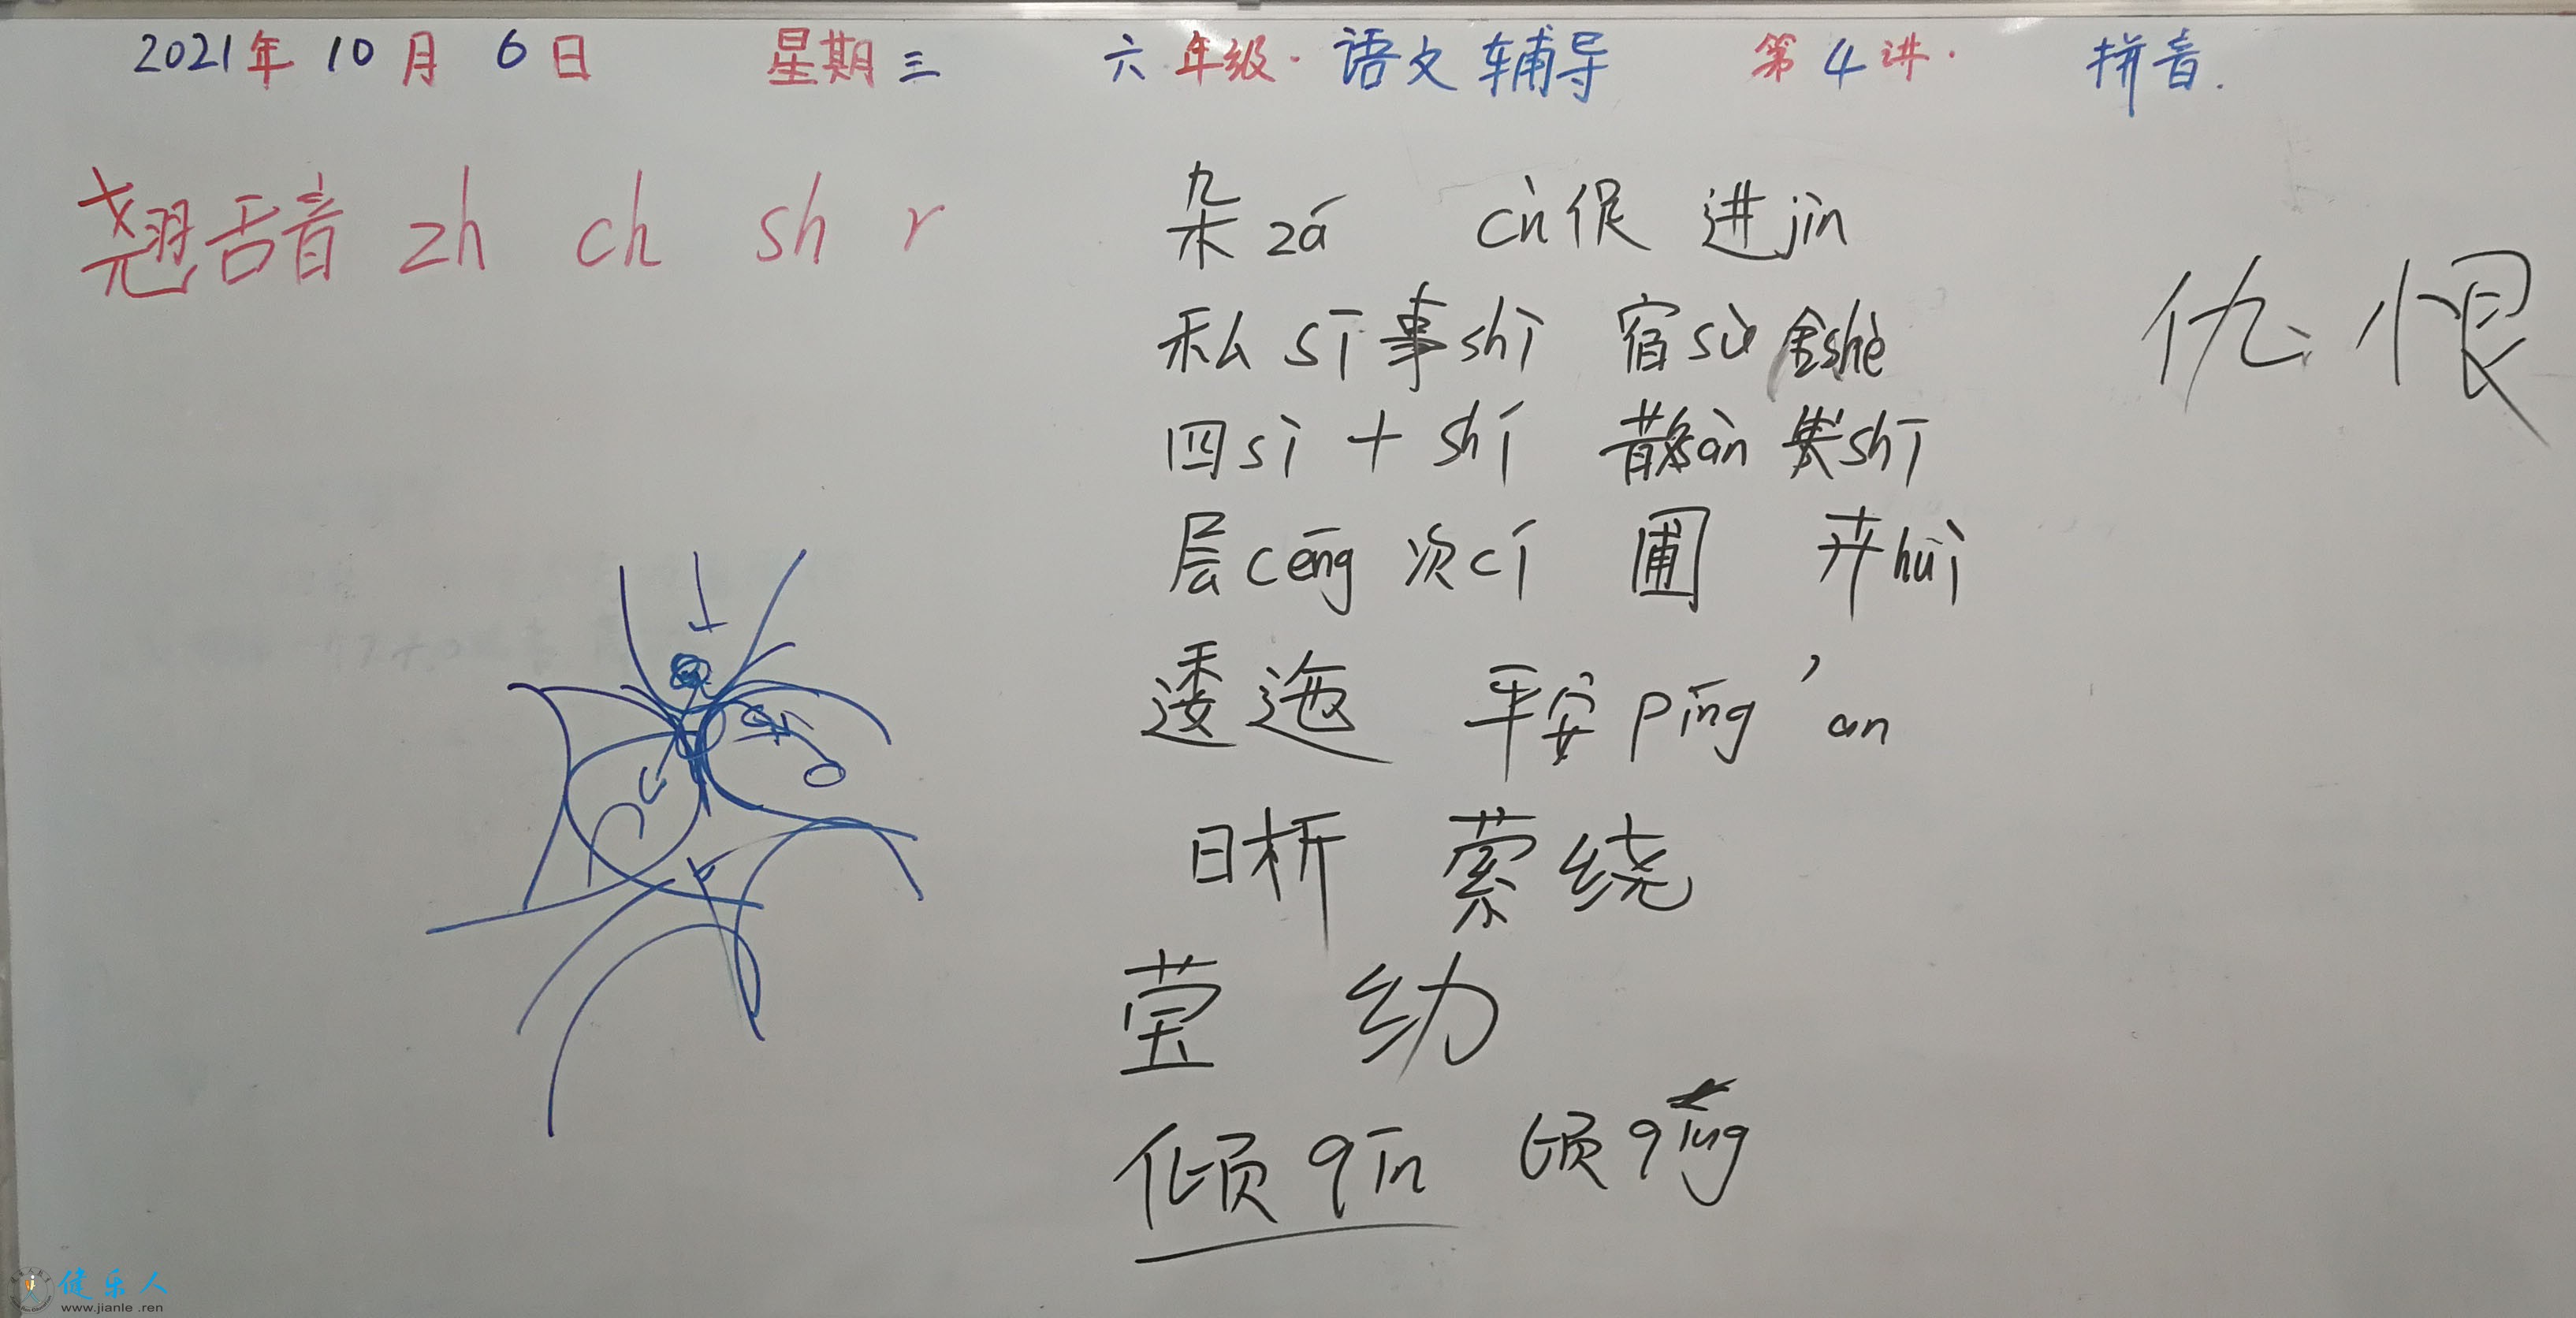 2021年 10月 6日 星期三 六年级·语文辅导 第4讲· 拼音.
翘舌音 zh ch sh r
杂 zá cù 促 进 jìn
私 sī 事 shī 宿 sù 舍 shè
仇恨
四 sì 十 shí 散 sàn shī
层 cēng 次 cī 圃 卉 huì
逶迤 平安 píng'an
日析 萦绕
莹 幼
倾 qīn 顷 qīng
健乐人
www.jianle.ren